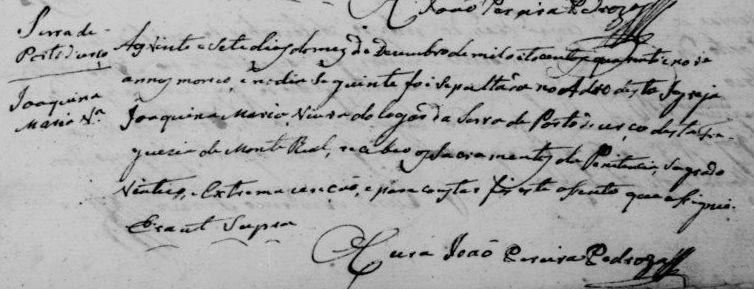 João Pereira Pedroza
Serra de
Porto d'urso
Joaquina
Maria Vª
Aos Vinte e Sete dias do mez de Dezembro de mil oito centos quarenta e
annos morreo, e no dia Seguinte foi Sepultada no Adro desta Igreja
Joaquina Maria Viuva do logar da Serra de Porto d'urço desta Fre-
guezia de Monte Real, recebeo os Sacramentos da Penitencia, Sagrado
Viatico, e Extrema unção, e para constar fiz este asento que asignei.
Era ut Supra
O Cura João Pereira Pedroza